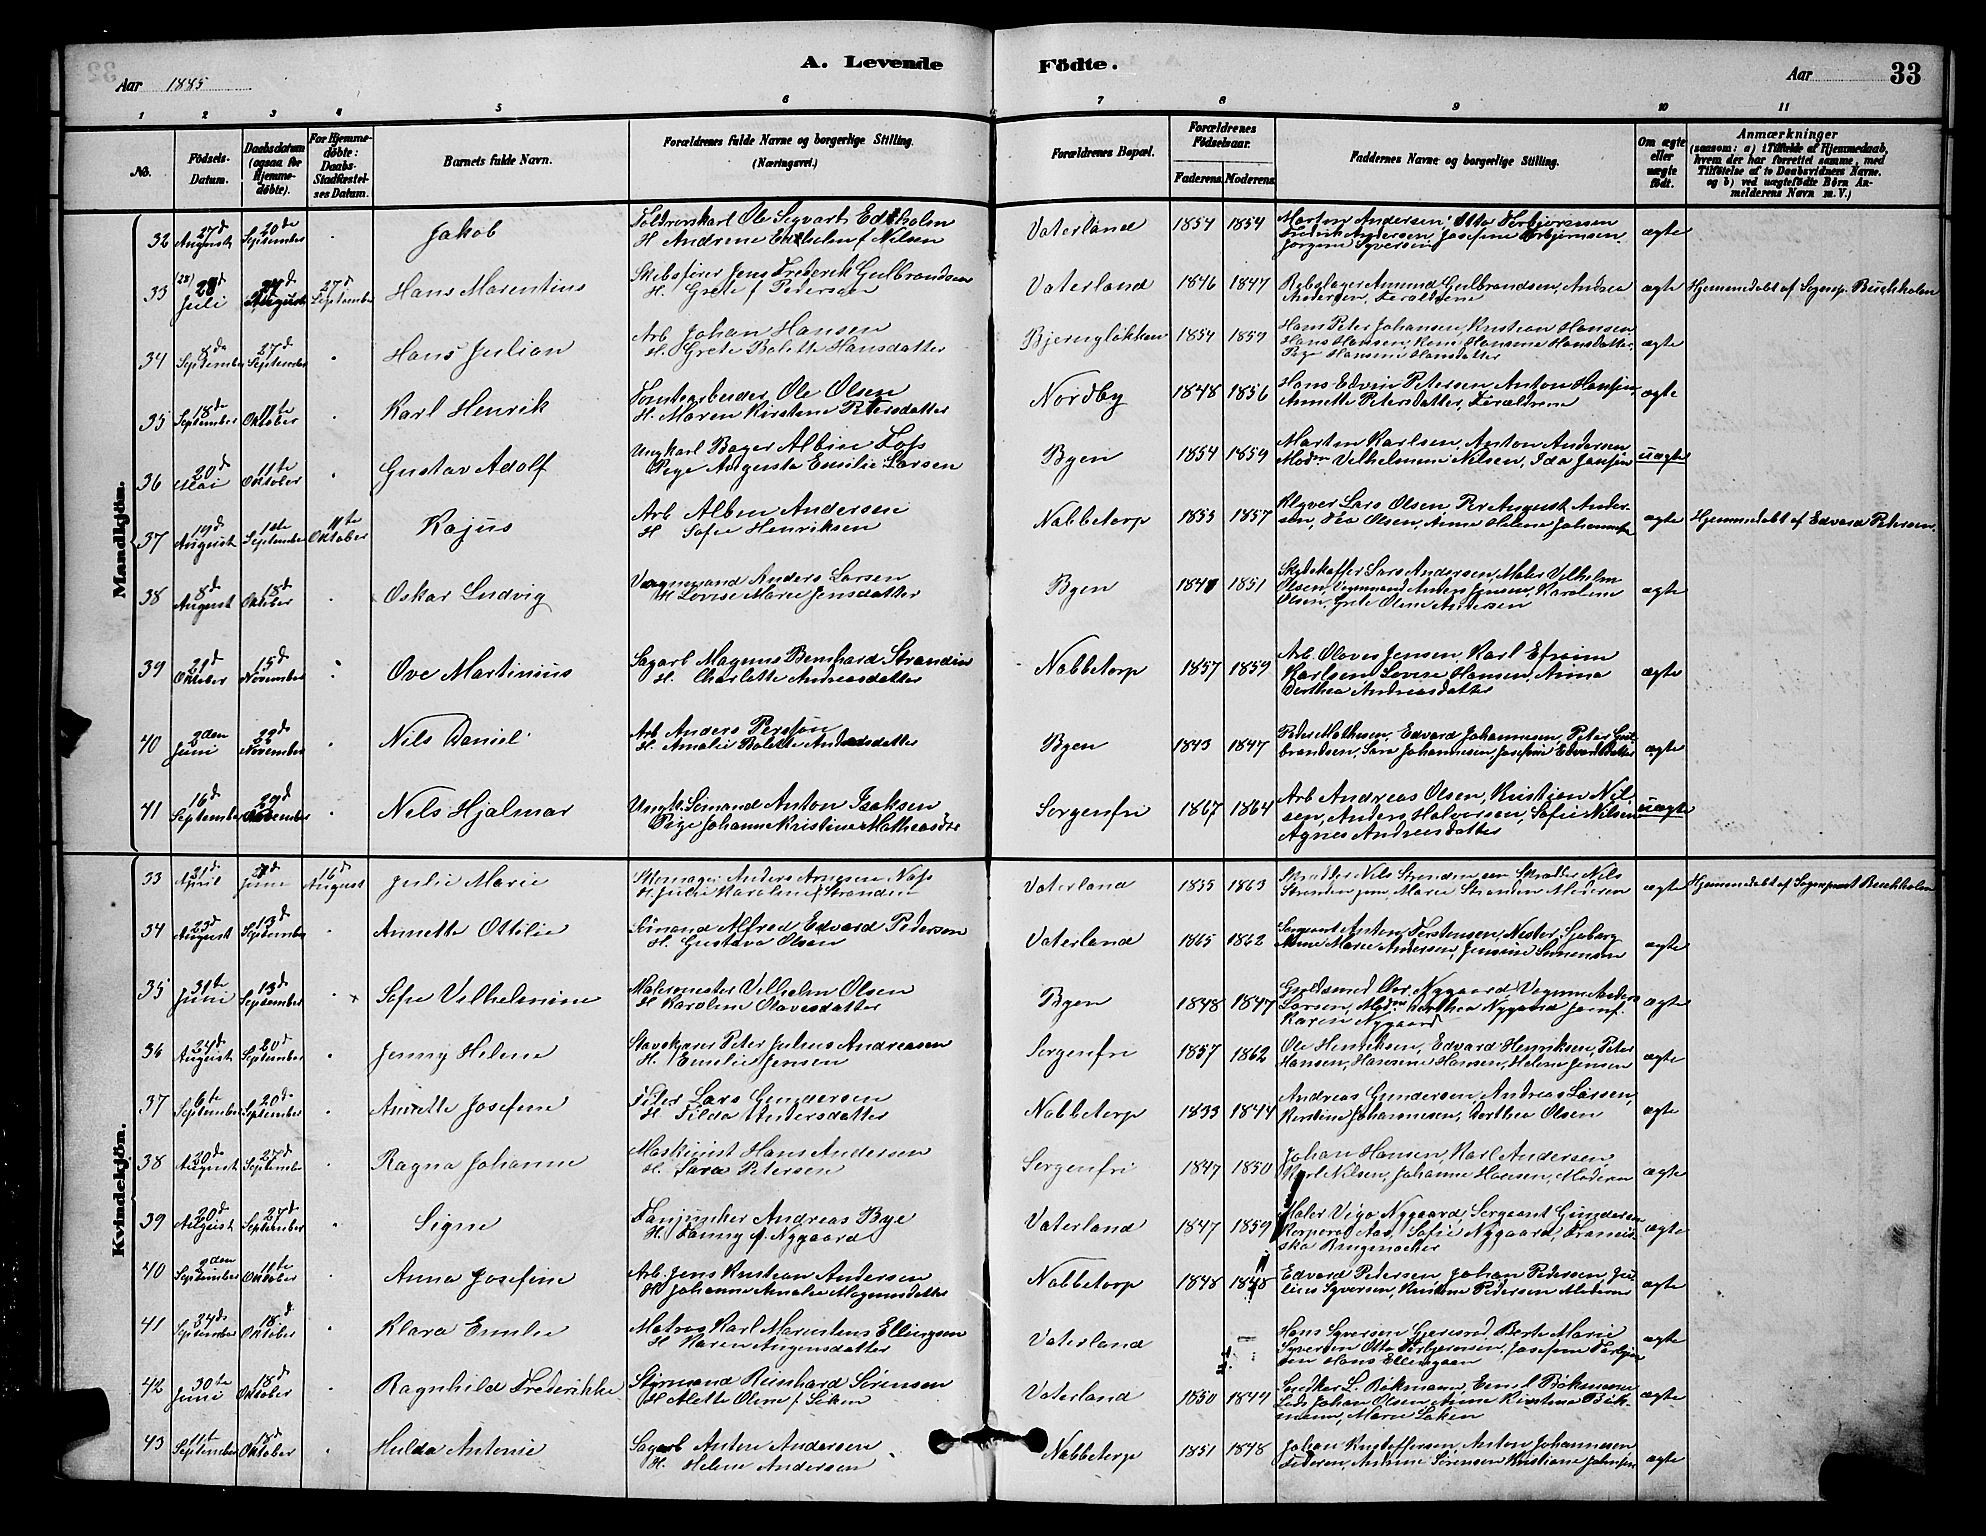 A. Levende Födte.
Aar 1885
Aar 33
1 2 3 4 5 6 7 8 9 10 11
No.
Födsels-Datum.
Daabsdatum (ogsaa for Hjemmedöbte).
For Hjemmedöbte: Daabs-Stadfæstelses Datum.
Barnets fulde Navn.
Forældrenes fulde Navne og borgerlige Stilling. (Næringsvei.)
Forældrenes Bopæl.
Forældrenes Födselsaar.
Faderens. Moderens.
Faddernes Navne og borgerlige Stilling.
Om ægte eller uægte födt.
Anmærkninger
(saasom: a) i Tilfælde af Hjemmedaab, hvem der har forrettet samme, med Tilföielse af to Daabsvidners Navne. og b) ved uægtefödte Börn Anmelderens Navn m. V.)
Mandkjön.
32 27d August 20de September Jakob
Toldrorskarl Ole Sigvart Edholm
H Andrine Edholm f Nilsen
Vaterland 1854 1854
Marten Andersen, Otto Torbjørnsen
Fredrik Andersen, Josefine Torbjørnsen
Jørgine Syversen
ægte
33 (28) 28d Juli 27d September Hans Marentius
Skibsfører Jens Frederik Gulbrandsen
H. Grete f Pedersen
Vaterland 1846 1847
Rebslager Amund Gulbrandsen, Andrea
Andersen, Forældrene
ægte Hjemmedøbt af Sognep. Buchholm
34 8de September 27d September Hans Julian
Arb Johan Hansen
H. Grete Bolette Hansdatter
Bjerngløkken 1854 1859
Hans Peter Johansen, Kristian Hansen
Hans Hansen, Kone Hansine Hansdatter,
Pige Hansine Hansdatter
ægte
35 18de September 11te Oktober Karl Henrik
Tomtearbeider Ole Olsen
H. Maren Kirstine Petersdatter
Nordby 1848 1856
Hans Edvin Petersen, Anton Hansen,
Annette Petersdatter, Forældrene
ægte
36 20d Mai 11te Oktober Gustav Adolf
Ungkarl Bager Albin Foss
Pige Augusta Emilie Larsen
Byen 1854 1859
Marten Karlsen, Anton Andersen
Modn Vilhelmine Nilsen, Ida Jansen
uægte
37 19d August September 11te Oktober Kajus
Arb Alben Andersen
H Sofie Henriksen
Nabbetorp 1853 1857
Klyver Lars Olsen, August Ander-
sen, Thea Olsen, Anne Helene Johannesen
ægte Hjemmedøbt af Edvard Petersen.
38 8d August 18d Oktober Oskar Ludvig
Vognmand Anders Larsen
H Lovise Marie Jensdatter
Byen 1851
Skydskaffer Lars Andersen, Maler Vilhelm
Olsen, Vognmand Anders Jensen, Karoline
Olsen, Grete Oline Andersen
ægte
39 21d Oktober 15d November Ove Martinius
Sagarb Magnus Bernhard Strandin
H. Charlotte Andreasdatter
Nabbetorp 1857 1859
Arb. Olaves Jensen, Karl Efraim
Karlsen Lovise Hansen, Anna
Dorthea Andreasdatter
ægte
40 2den Juni 22d November Nils Daniel
Arb Anders Persson
H. Amalie Bolette Andersdatter
Byen 1843 1847
Peder Mathisen, Edvard Johannesen, Peter Gul-
brandsen, Sara Johannesen, Josefine Edvardsdatter
ægte
41 16d September 29d November Nils Hjalmar
Ungk. Sømand Anton Isaksen
Pige Johanne Kristine Matheasdtr
Sorgenfri 1867 1864
Arb Andreas Olsen, Kristian Nil-
sen, Anders Halvorsen, Sofie Nilsen
Agnes Andreasdatter
uægte
Kvindekjön.
33 21d April Juni 16d August Julie Marie
Skomager Anders Arnesen Næss
H. Julie Karoline f Stranden
Vaterland 1835 1863
Skrædder Nils Stranden sen Skrædder Nils
Stranden jun, Marie Stranden Moderen
ægte Hjemmedøbt af Sogneprest Buchholm
34 23d August 13d September Annette Ottilie
Sømand Alfred Edvard Pedersen
H. Gustava Olsen
Vaterland 1865 1862
Sergeant Anton Torstensen, Nester Sjøberg
Anne Marie Andersen, Jensine Simensen
ægte
35 31te Juni 13d September Sofie Vilhelmine
Malermester Vilhelm Olsen
H Karoline Olavesdatter
Byen 1848 1847
Guldsmed Nygaard, Vognm Anders
Larsen, Modn Dorthea Nygaard Jomf.
Karen Nygaard
ægte
36 24d August 20d September Jenny Helene
Stavskjærer Peter Julius Andreasen
H. Emilie Jensen
Sorgenfri 1857 1862
Ole Henriksen, Edvard Henriksen, Peter
Hansen, Hansine Hansen, Helene Jensen
ægte
37 6te September 20de September Annette Josefine
Lars Gundersen
H. Tilda Andersdatter
Nabbetorp 1833 1844
Andreas Gundersen Andreas Larsen,
Kirstine Johannesen, Dorthea Olsen
ægte
38 30d August 27d September Ragna Johanne
Maskinist Hans Andersen
H. Sara Petersen
Sorgenfri 1847 1850
Johan Hansen, Karl Andersen
Karl Nilsen, Johanne Hansen, Moderen
ægte
39 20d August 27d September Signe
Fanjunker Andreas Bye
H. Fanny f. Nygaard
Vaterland 1847 1859
Maler Vigo Nygaard, Sergeant Gundersen
Korporal Aas, Sofie Nygaard, Francis-
ska Brugemacker
ægte
40 2den September 11te Oktober Anna Josefine
Arb. Jens Kristian Andersen
H Johanne Amalie Magnusdatter
Nabbetorp 1848 1848
Edvard Petersen, Johan Pedersen, Ju-
lius Syversen, Kristine Pedersen Moderen
ægte
41 24de September 18d Oktober Klara Emilie
Matros Karl Marentius Ellingsen
H Karen Augensdatter
Vaterland
Hans Syversen Gjerisrød, Berte Marie
Syversen Otto Torbjørnsen, Josefine Torbjørn-
sen Hans Ellingsen
ægte
42 30te Juni 18d Oktober Ragnhild Frederikke
Styrmand Reinhard Sørensen
H Alette Oline f. Løken
Vaterland 1850 1844
Snedker L. Bøkmann, Emil Bøkmann
Lods Johan Olsen, Anne Kirstine Bøk-
mann, Marie Løken
ægte
43 11te September 18d Oktober Hulda Antonie
Sagarb Anton Andersen
H. Helene Andersen
Nabbetorp 1851 1848
Johan Kristoffersen, Anton Johannesen
Faderen, Antine Sørensen Kristiane Johansen
ægte